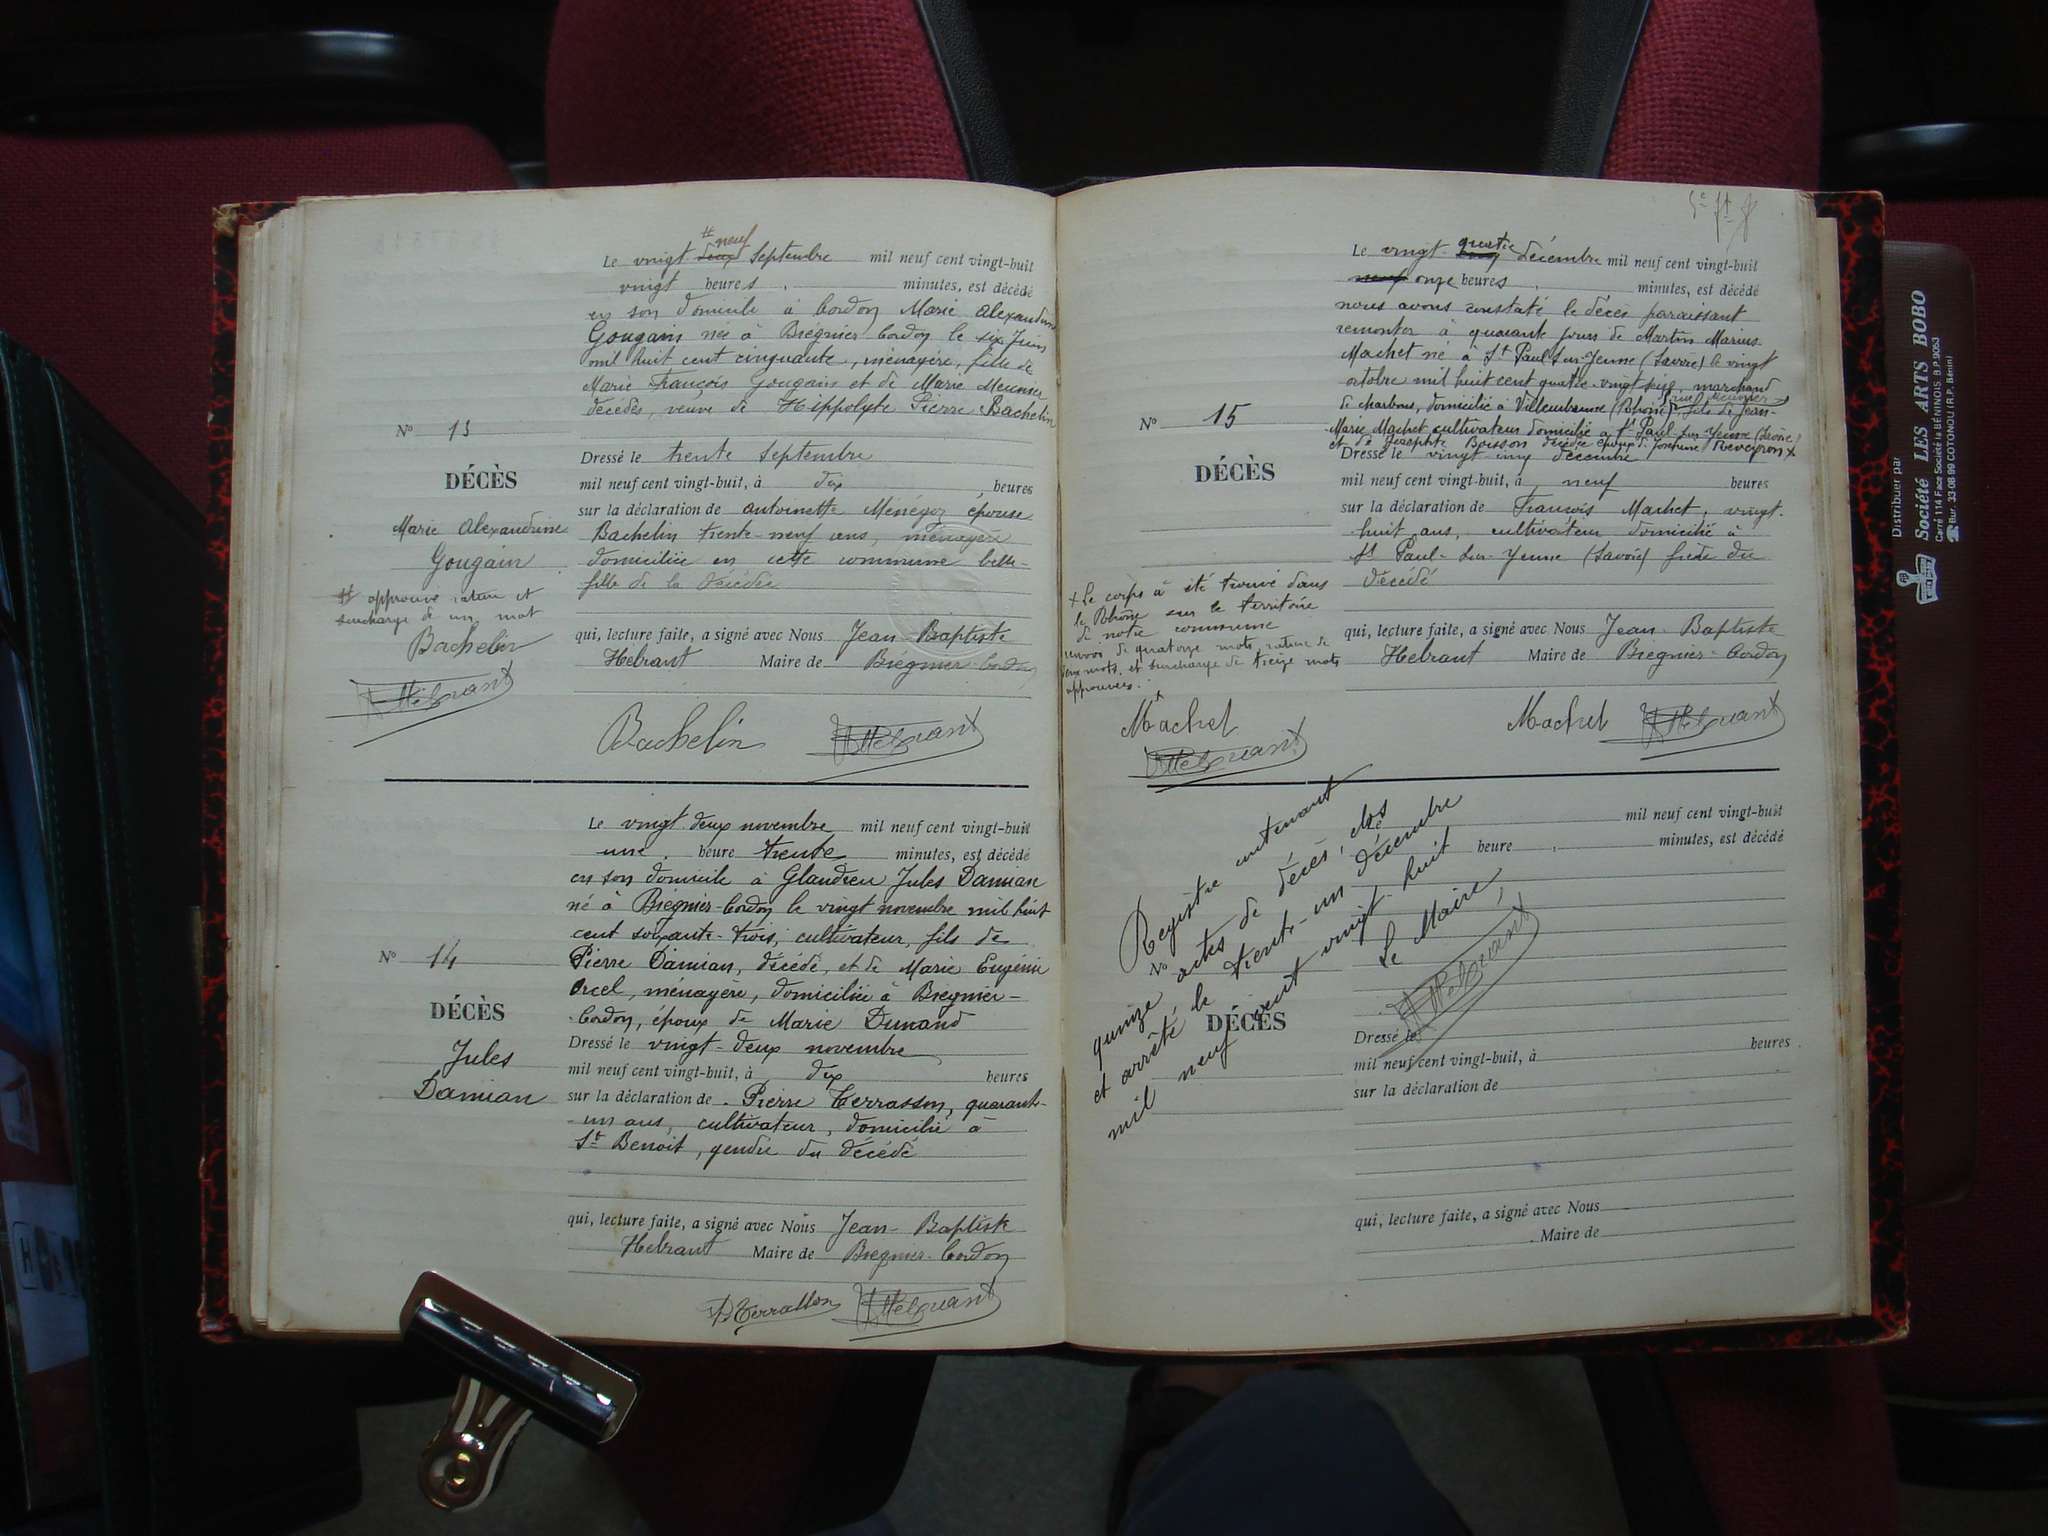 # neuf
Le vingt deux Septembre mil neuf cent vingt-huit
vingt heures minutes, est décédé
en son domicile à Cordon Marie Alexandrine
Gougain née à Brégnier Cordon le six Juin
mil huit cent cinquante, ménagère, fille de
Marie François Gougain et de Marie Meunier
décédés, veuve de Hippolyte Pierre Bachelin
N° 13
DÉCÈS
Marie Alexandrine
Gougain
# approuvé rature et
surcharge d'un mot
Bachelin
Hébrant
Dressé le trente Septembre
mil neuf cent vingt-huit, à dix heures
sur la déclaration de Antoinette Ménégoz épouse
Bachelin trente-neuf ans, ménagère
domiciliée en cette commune belle-
fille de la décédée
qui, lecture faite, a signé avec Nous Jean-Baptiste
Hébrant Maire de Brégnier-Cordon
Bachelin Hébrant
Le vingt-deux novembre mil neuf cent vingt-huit
une heure trente minutes, est décédé
en son domicile à Glandieu Jules Damian
né à Brégnier-Cordon le vingt novembre mil huit
cent soixante-trois, cultivateur, fils de
Pierre Damian, décédé, et de Marie Eugénie
Orcel, ménagère, domiciliée à Brégnier-
Cordon, époux de Marie Dunand
N° 14
DÉCÈS
Jules
Damian
Dressé le vingt-deux novembre
mil neuf cent vingt-huit, à dix heures
sur la déclaration de Pierre Terrasson, quarante-
-un ans, cultivateur, domicilié à
St Benoit, gendre du décédé
qui, lecture faite, a signé avec Nous Jean-Baptiste
Hébrant Maire de Brégnier-Cordon
P Terrasson Hébrant
quatre
Le vingt- décembre mil neuf cent vingt-huit
neuf onze heures minutes, est décédé
nous avons constaté le décès paraissant
remonter à quarante jours de Martin Marius
Machet né à St Paul-sur-Yenne (Savoie) le vingt
octobre mil huit cent quatre-vingt-, marchand
de charbons, domicilié à Villeurbanne (Rhône) fils de Jean-
Marie Machet cultivateur domicilié à St Paul-sur-Yenne (Savoie)
et de Josephte Boisson décédée époux de Reveyron x
N° 15
DÉCÈS
x Le corps à été trouvé dans
le Rhône sur le territoire
de notre commune
renvoi de quatorze mots, rature de
deux mots, et surcharge de treize mots
approuvés.
Machet
Hébrant
Dressé le vingt-cinq décembre
mil neuf cent vingt-huit, à neuf heures
sur la déclaration de François Machet, vingt-
huit ans, cultivateur domicilié à
St Paul-sur-Yenne (Savoie) frère du
décédé
qui, lecture faite, a signé avec Nous Jean-Baptiste
Hébrant Maire de Brégnier-Cordon
Machet Hébrant
Registre contenant
quinze actes de décès, clos
et arrêté le trente-un décembre
mil neuf cent vingt-huit
Le Maire,
Hébrant
mil neuf cent vingt-huit
heure minutes, est décédé
N°
DÉCÈS
Dressé le
mil neuf cent vingt-huit, à heures
sur la déclaration de
qui, lecture faite, a signé avec Nous
Maire de
Distribuer par
Société LES ARTS BOBO
Carré 114 Face Société la BÉNINOIS. B.P. 9053
Bur. 33-08-99 COTONOU (R.P. Bénin)